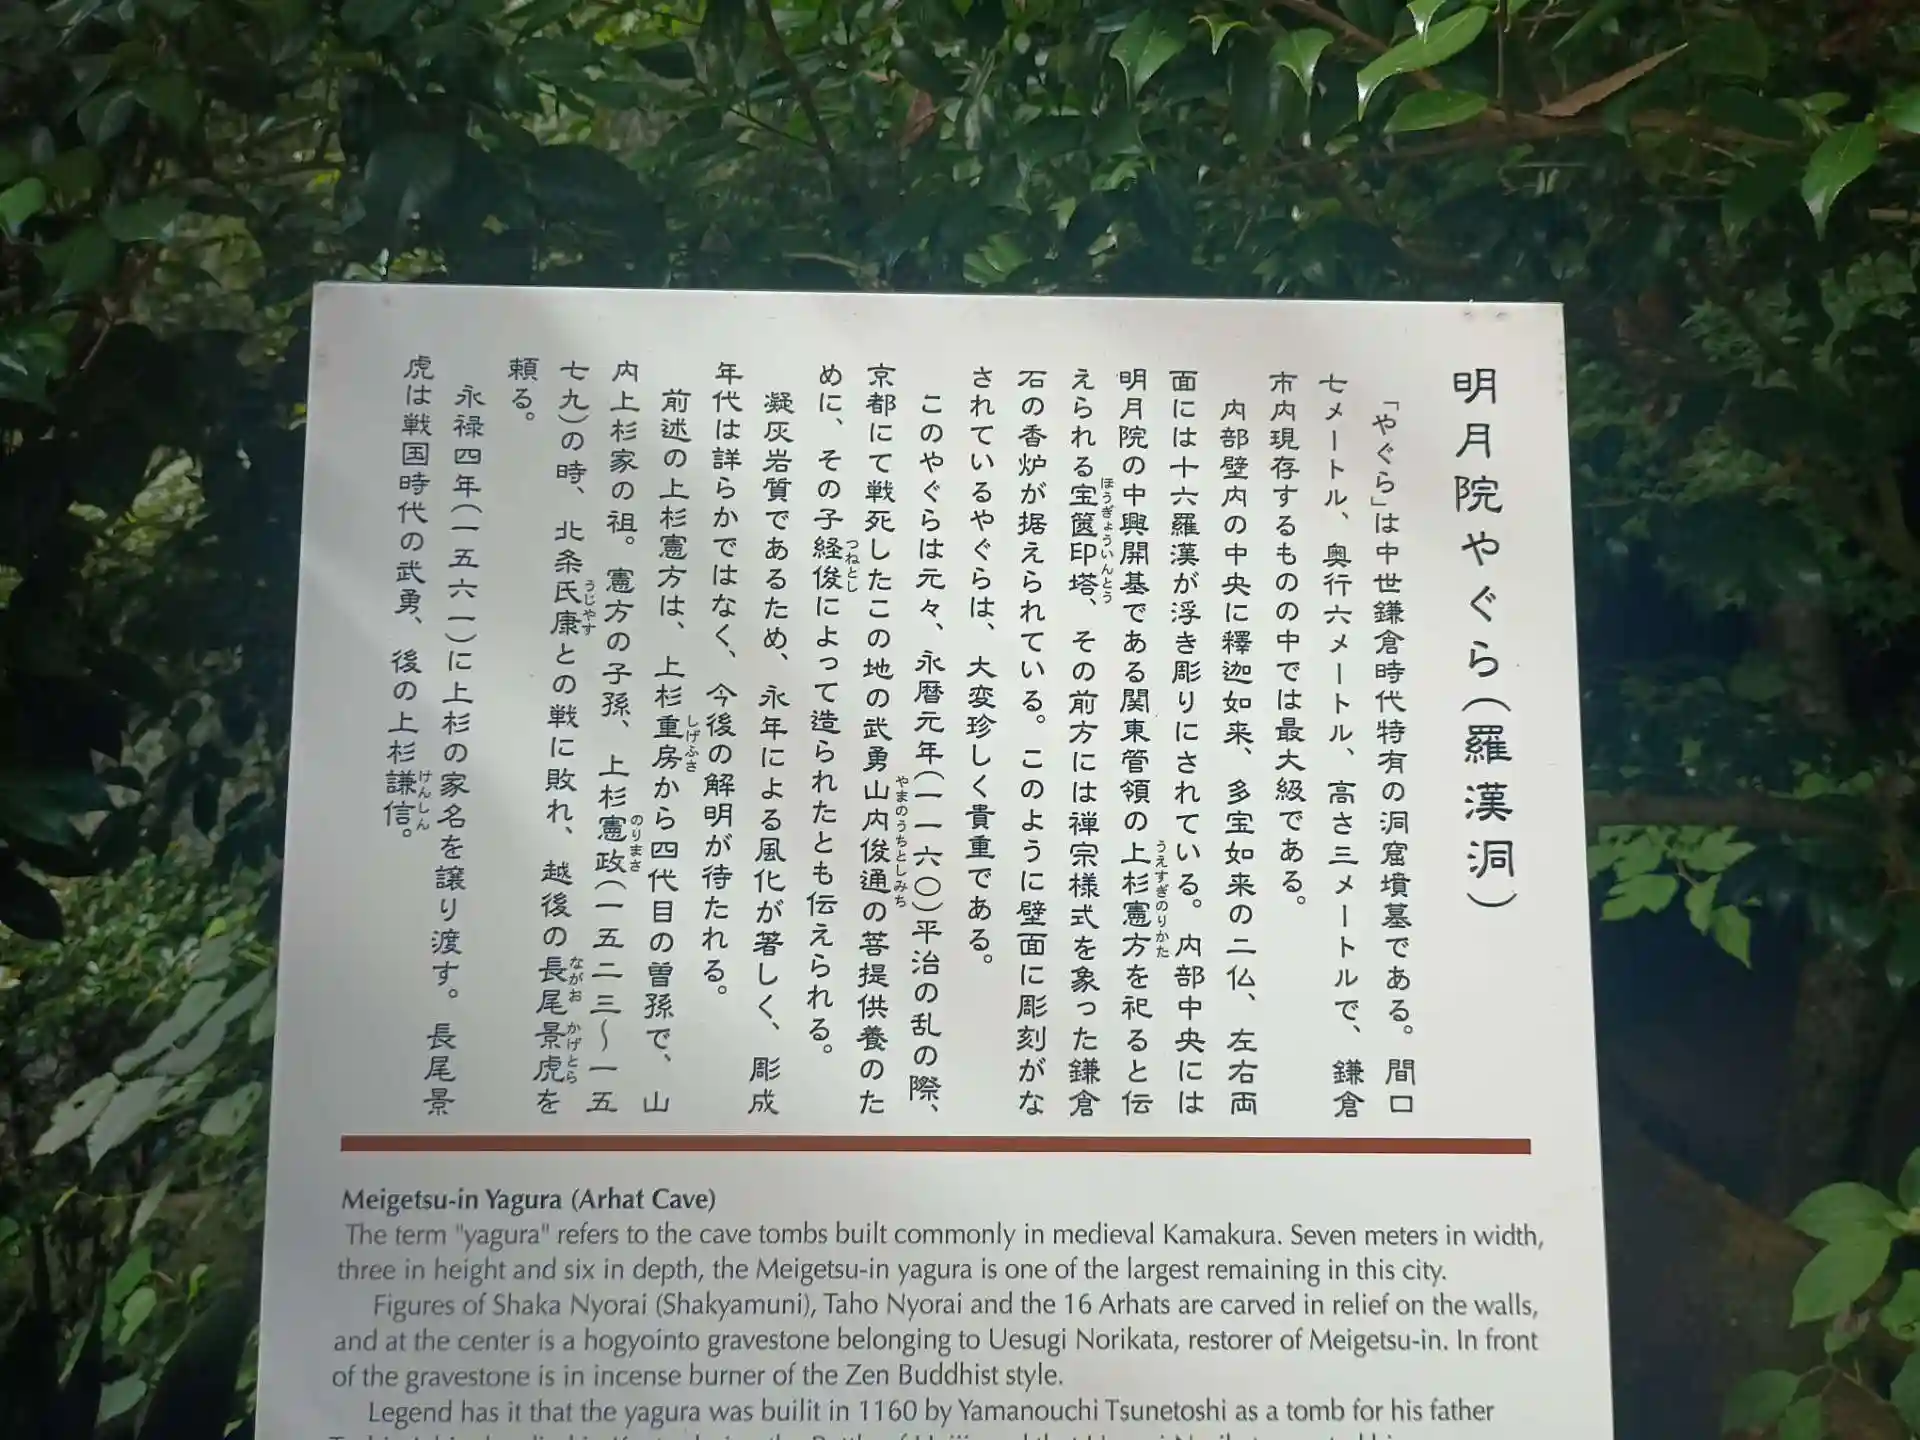 明月院やぐら（羅漢洞）
「やぐら」は中世鎌倉時代特有の洞窟墳墓である。間口
七メートル、奥行六メートル、高さ三メートルで、鎌倉
市内現存するものの中では最大級である。
内部壁内の中央に釋迦如来、多宝如来の二仏、左右両
面には十六羅漢が浮き彫りにされている。内部中央には
明月院の中興開基である関東管領の上杉憲方を祀ると伝
うえすぎのりかた
えられる宝篋印塔、その前方には禅宗様式を象った鎌倉
ほうぎょういんとう
石の香炉が据えられている。このように壁面に彫刻がな
されているやぐらは、大変珍しく貴重である。
このやぐらは元々、永暦元年（一一六〇）平治の乱の際、
京都にて戦死したこの地の武勇山内俊通の菩提供養のた
やまのうちとしみち
めに、その子経俊によって造られたとも伝えられる。
つねとし
凝灰岩質であるため、永年による風化が著しく、彫成
年代は詳らかではなく、今後の解明が待たれる。
前述の上杉憲方は、上杉重房から四代目の曽孫で、山
しげふさ
内上杉家の祖。憲方の子孫、上杉憲政（一五二三〜一五
のりまさ
七九）の時、北条氏康との戦に敗れ、越後の長尾景虎を
うじやす ながお かげとら
頼る。
永禄四年（一五六一）に上杉の家名を譲り渡す。長尾景
虎は戦国時代の武勇、後の上杉謙信。
けんしん
Meigetsu-in Yagura (Arhat Cave)
The term "yagura" refers to the cave tombs built commonly in medieval Kamakura. Seven meters in width,
three in height and six in depth, the Meigetsu-in yagura is one of the largest remaining in this city.
Figures of Shaka Nyorai (Shakyamuni), Taho Nyorai and the 16 Arhats are carved in relief on the walls,
and at the center is a hogyointo gravestone belonging to Uesugi Norikata, restorer of Meigetsu-in. In front
of the gravestone is in incense burner of the Zen Buddhist style.
Legend has it that the yagura was builit in 1160 by Yamanouchi Tsunetoshi as a tomb for his father